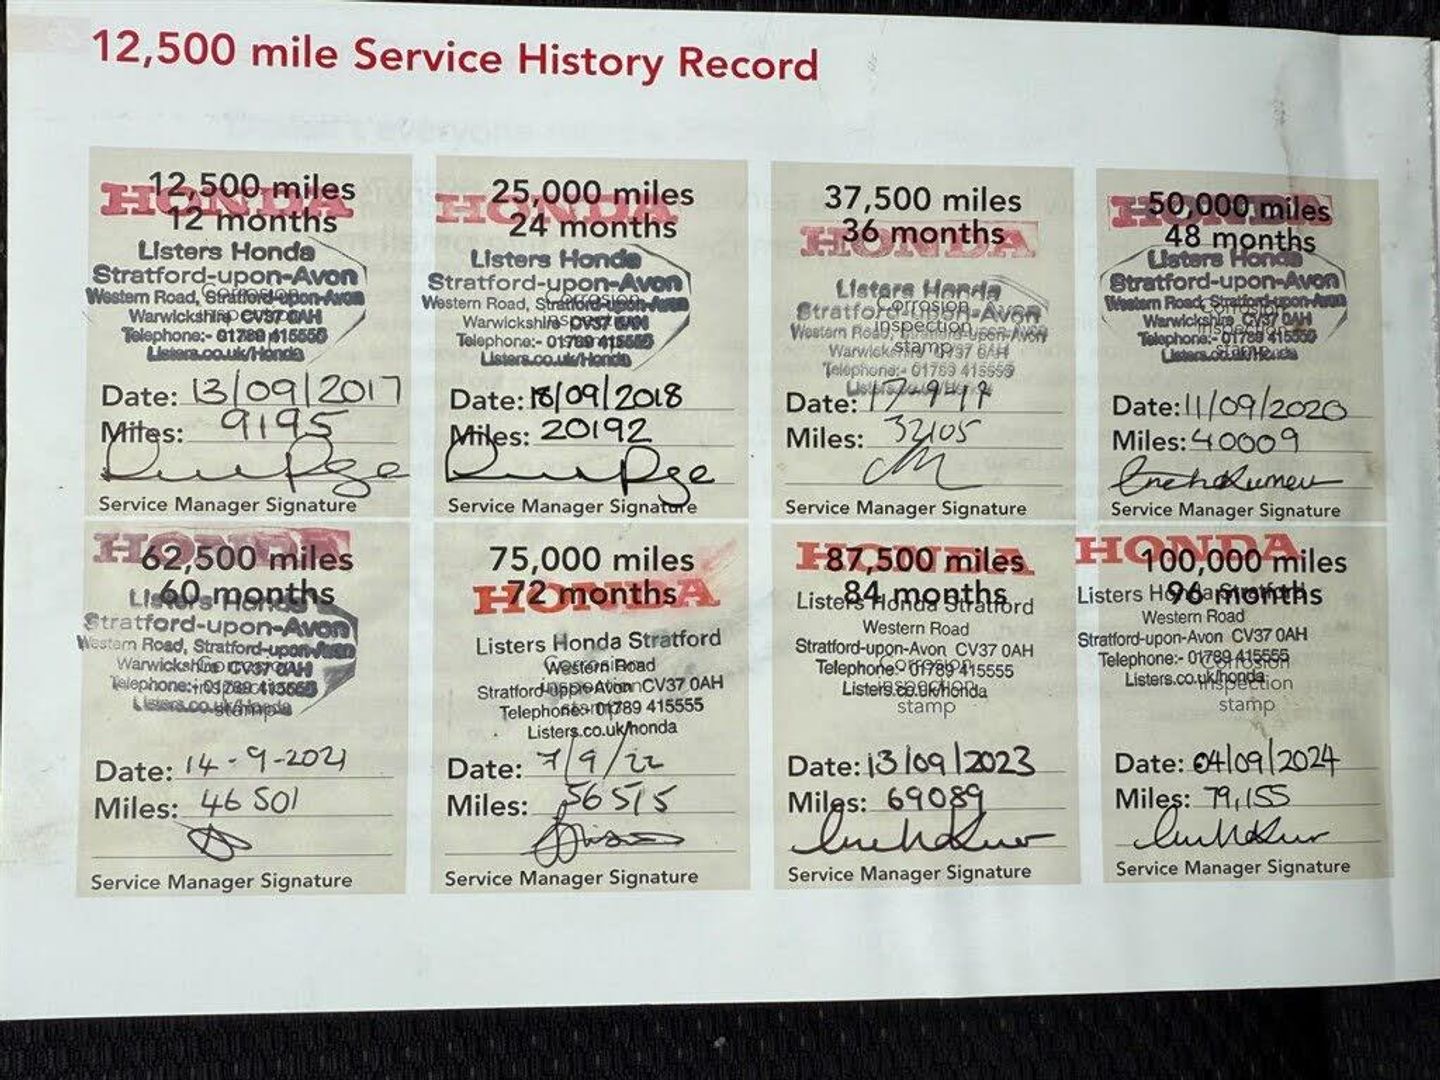 12,500 mile Service History Record
12,500 miles
HONDA
12 months
Listers Honda
Stratford-upon-Avon
Corrosion
Western Road, Stratford-upon-Avon
inspection
Warwickshire CV37 0AH
Telephone:- 01789 415555
Listers.co.uk/Honda
Date: 13/09/2017
Miles: 9195
Service Manager Signature
25,000 miles
HONDA
24 months
Listers Honda
Stratford-upon-Avon
Corrosion
Western Road, Stratford-upon-Avon
Warwickshire CV37 0AH
Telephone:- 01789 415555
Listers.co.uk/Honda
Date: 18/09/2018
Miles: 20192
Service Manager Signature
37,500 miles
36 months
HONDA
Listers Honda
Corrosion
Stratford-upon-Avon
inspection
Western Road, Stratford-upon-Avon
stamp
Warwickshire CV37 0AH
Telephone:- 01789 415555
Date: 17-9-19
Miles: 32105
Service Manager Signature
50,000 miles
HONDA
48 months
Listers Honda
Stratford-upon-Avon
Western Road, Stratford-upon-Avon
Warwickshire CV37 0AH
inspection
Telephone:- 01789 415555
stamp
Listers.co.uk/Honda
Date: 11/09/2020
Miles: 40009
Service Manager Signature
HONDA
62,500 miles
60 months
Listers Honda
Stratford-upon-Avon
Western Road, Stratford-upon-Avon
Warwickshire CV37 0AH
Telephone:- 01789 415555
Listers.co.uk/Honda
stamp
Date: 14-9-2021
Miles: 46 501
Service Manager Signature
75,000 miles
72 months
HONDA
Listers Honda Stratford
Corrosion
Western Road
inspection
Stratford-upon-Avon CV37 0AH
stamp
Telephone:- 01789 415555
Listers.co.uk/honda
Date: 7/9/22
Miles: 56515
Service Manager Signature
HONDA
87,500 miles
84 months
Listers Honda Stratford
Western Road
Stratford-upon-Avon CV37 0AH
Corrosion
Telephone:- 01789 415555
inspection
Listers.co.uk/honda
stamp
Date: 13/09/2023
Miles: 69089
Service Manager Signature
HONDA
100,000 miles
96 months
Listers Honda Stratford
Western Road
Stratford-upon-Avon CV37 0AH
Telephone:- 01789 415555
Corrosion
Listers.co.uk/honda
inspection
stamp
Date: 04/09/2024
Miles: 79,155
Service Manager Signature